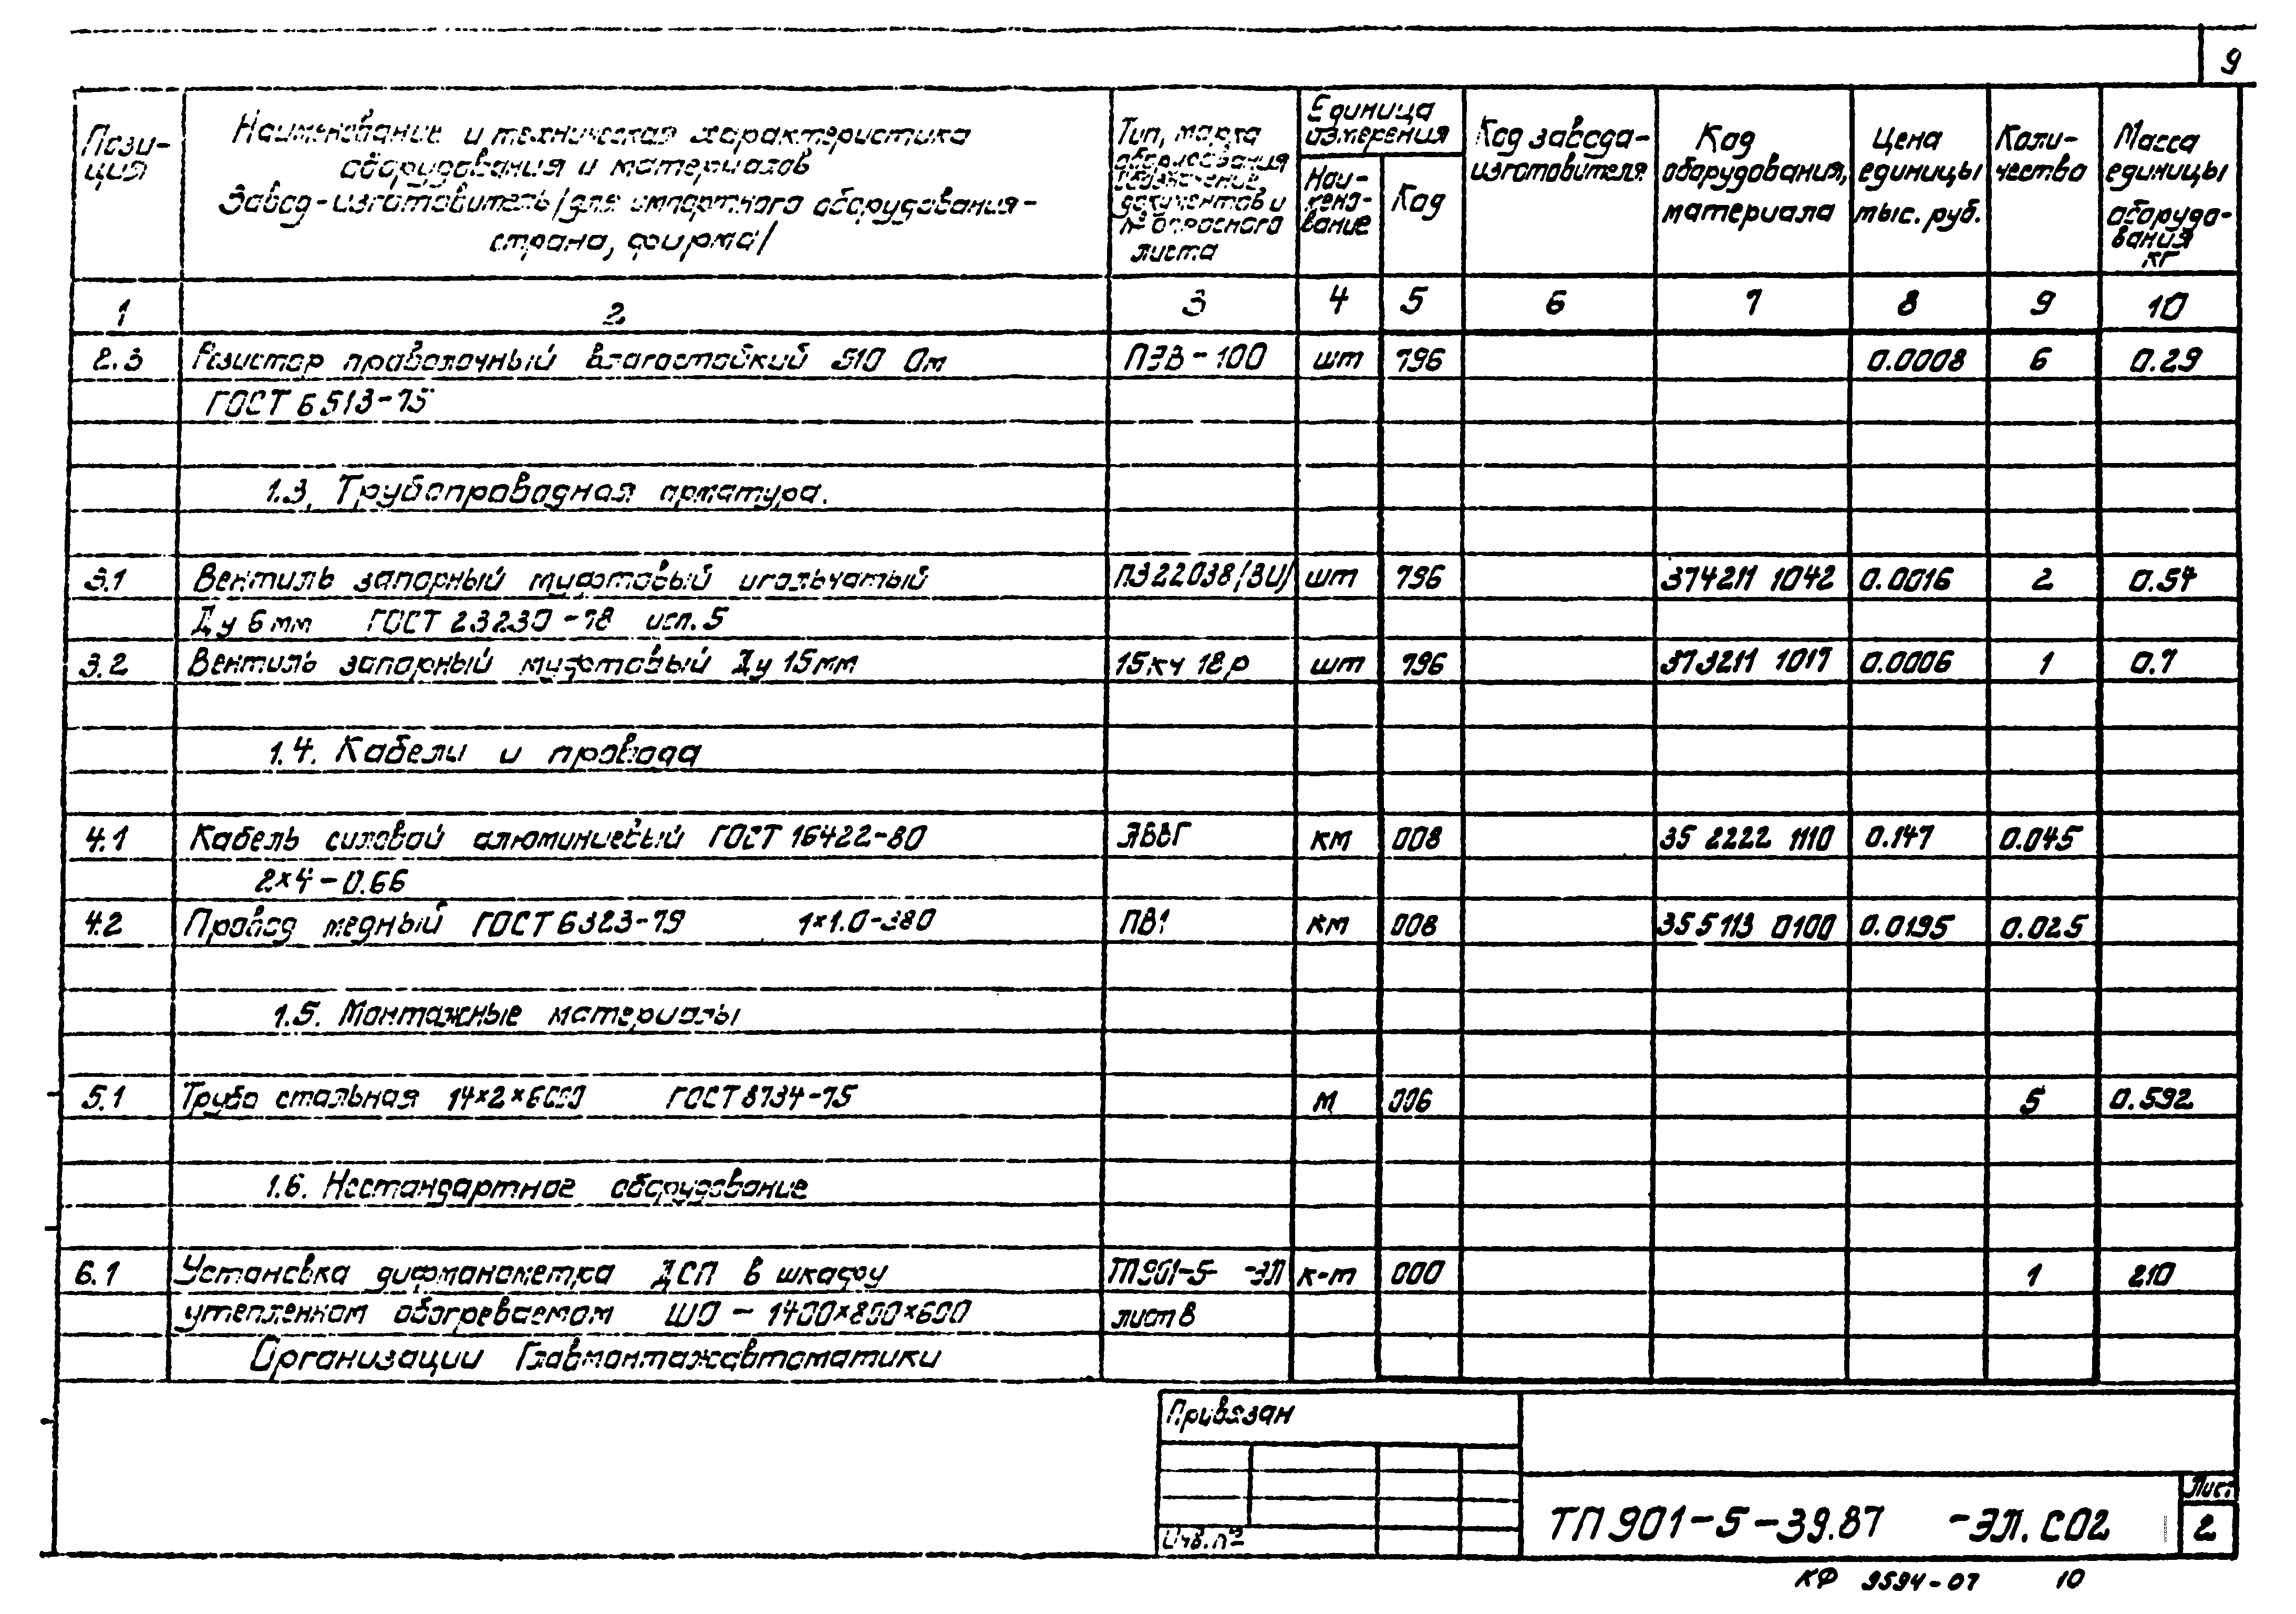 9
Пози-
ция
Наименование и техническая характеристика
оборудования и материалов
Завод-изготовитель/для импортного оборудования-
страна, фирма/
Тип, марка
оборудования
обозначение
документов и
№ опросного
листа
Единица
измерения
Наи-
мено-
вание
Код
Код завода-
изготовителя
Код
оборудования,
материала
Цена
единицы
тыс. руб.
Коли-
чество
Масса
единицы
оборудо-
вания
кг
1 2 3 4 5 6 7 8 9 10
2.3 Резистор проволочный влагостойкий 510 Ом ПЭВ-100 шт 796 0.0008 6 0.29
ГОСТ 6513-75
1.3. Трубопроводная арматура.
3.1 Вентиль запорный муфтовый игольчатый ПЗ22038/ВИ/ шт 796 374211 1042 0.0016 2 0.54
Ду 6 мм ГОСТ 23230-78 исп. 5
3.2 Вентиль запорный муфтовый Ду 15мм 15кч 18р шт 796 373211 1017 0.0006 1 0.7
1.4. Кабели и провода
4.1 Кабель силовой алюминиевый ГОСТ 16422-80 км 008 35 2222 1110 0.147 0.045
2×4-0.66
4.2 Провод медный ГОСТ 6323-79 1×1.0-380 ПВ1 км 008 355113 0100 0.0195 0.025
1.5. Монтажные материалы
5.1 Труба стальная 14×2×6000 ГОСТ 8734-75 м 006 5 0.592
1.6. Нестандартное оборудование
6.1 Установка дифманометра ДСП в шкафу ТП901-5- -ЭЛ к-т 000 1 210
утепленном обогреваемом ШО - 1400×800×600 лист 8
Организации Главмонтажавтоматики
Привязан
Инв. №
ТП 901-5-39.87 -ЭЛ. СО2
Лист
2
КФ 9594-07 10